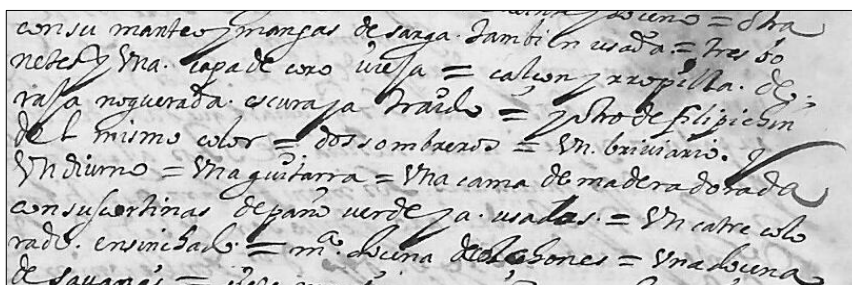 y bueno = otra
con su manteo y mangas de sarga. tambien usada = tres bo
netes y Vna. capa de coro vieja = calçon y rropilla. de
raja noguerada. escura ya traido = y otro de filipichin
del mismo color = dos sombreros = Vn. briviario. y
Vn diurno = Vna guitarra = Vna cama de madera dorada
con sus cortinas de paño verde ya. usadas. = Vn catre colo
rado. ensinchado = mª. docena de colchones = Vna docena
de savanas =